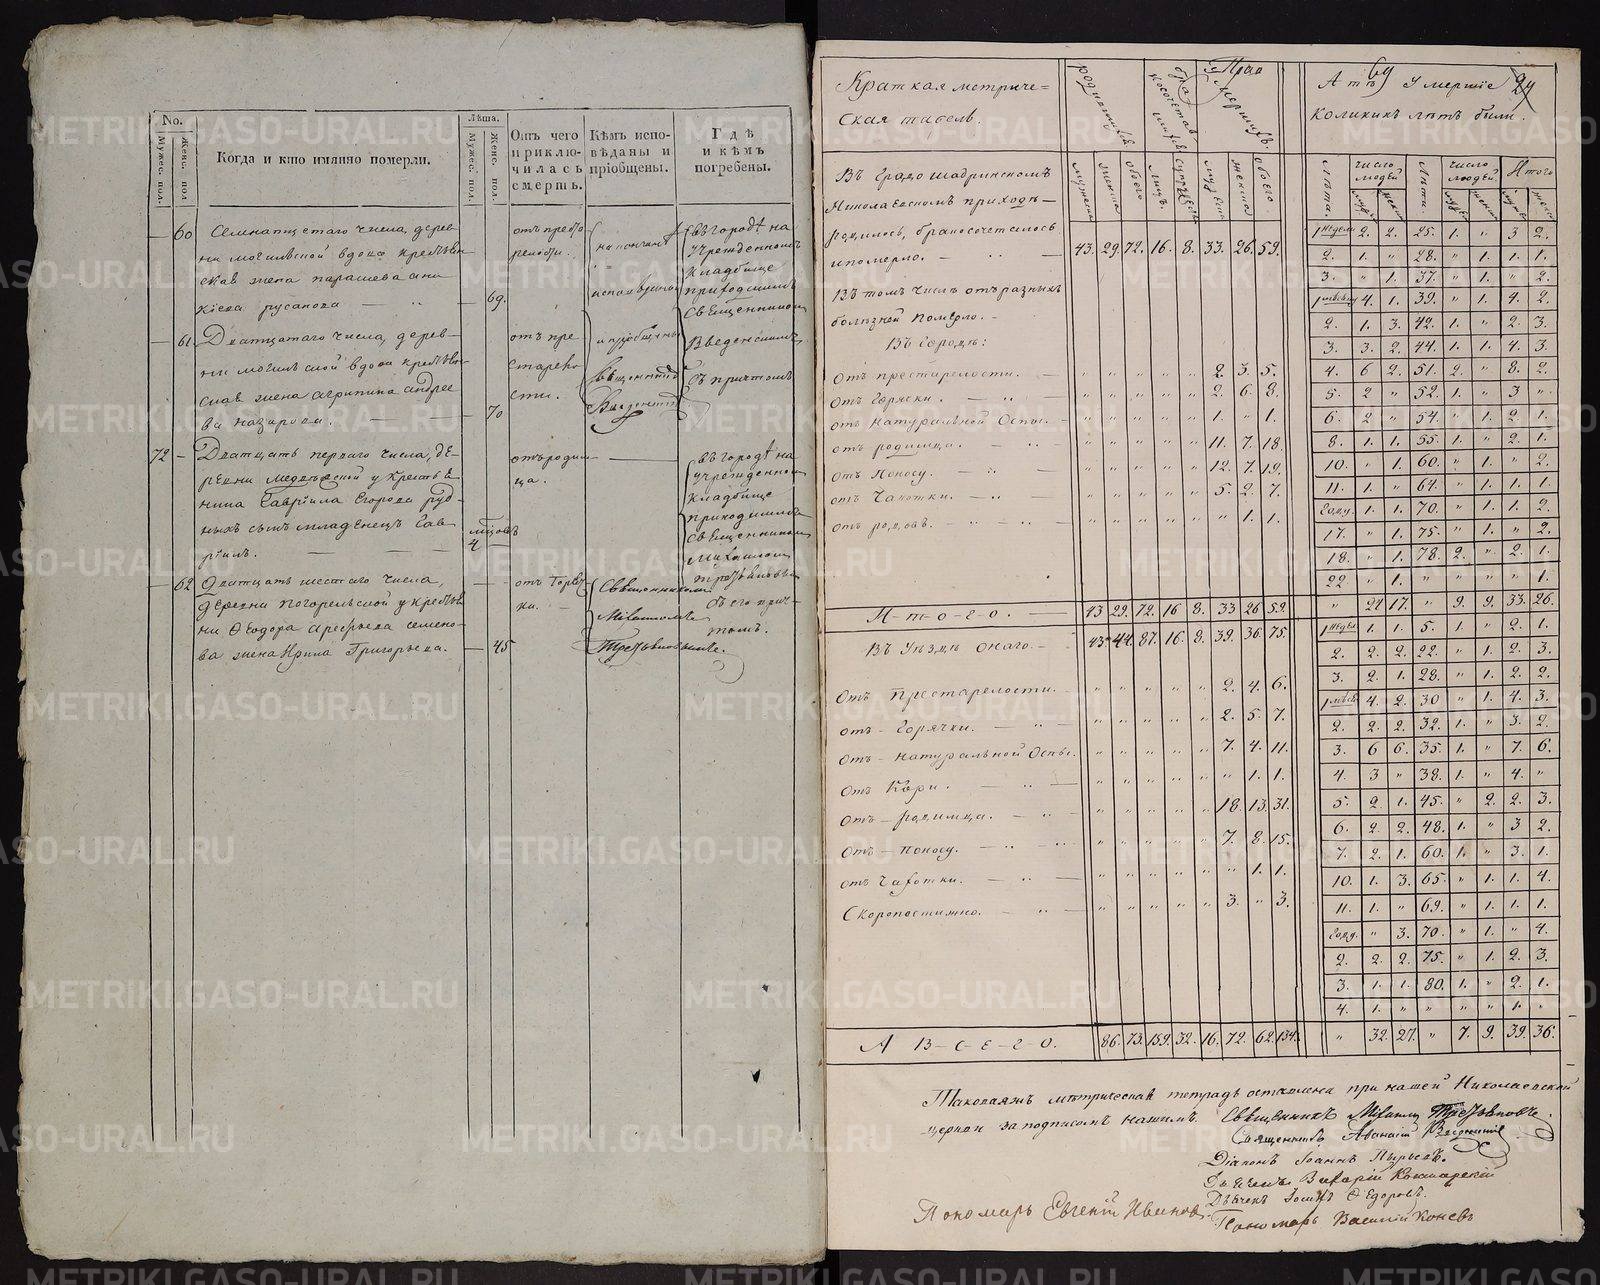 No.
Мужес. пол.
Женс. пол.
Когда и кто имянно померли.
Лѣта.
Мужес. пол.
Женс. пол.
Отъ чего
приклю-
чилась
смерть.
Кѣмъ испо-
вѣданы и
пріобщены.
Гдѣ
и кѣмъ
погребены.
60
Семнатцетаго числа, дерев
ни могилевской вдова крестьян
ская жена парасцева
русанова
69.
61
Дватцатаго числа, дерев-
ни могилевской вдова
жена агрипина андрее
ва назарова.
70
отъ пре
старело
сти.
и пріобщены
Священник
Введенский
въ городѣ на
учрежденномъ
кладбище
приходскимъ
Священником
Введенскимъ
съ причтомъ
72
Дватцать перваго числа, де
ревни у крестья
нина Гаврила Егорова руд-
ныхъ сынъ младенецъ Гав
рилъ.
4
отъ родим
ца.
въ городѣ на
учрежденном
кладбище
приходскимъ
Священником
Михаилом
съ его прич-
томъ.
62
Дватцать шестаго числа,
деревни погорельской у крестья
ни Ѳеодора Арефьева семено-
ва жена Ирина Григорьева.
45
отъ горяч
ки.
Священником
Михаиломъ
Краткая метриче=
ская табель.
родившихся
Въ градо Шадринскомъ
Николаевскомъ приходѣ
родилось, бракосочеталось
и померло. 43. 29. 72. 16. 8. 33. 26. 59.
Въ томъ числѣ отъ разныхъ
болѣзней померло.
Въ городѣ:
Отъ престарелости. 2. 3. 5.
отъ горячки. 2. 6. 8.
отъ натуральной оспы. 1. " 1.
отъ родимца. 11. 7. 18.
отъ поносу. 12. 7. 19.
отъ чахотки. 5. 2. 7.
отъ родовъ. " 1. 1.
И-т-о-г-о. 43 29. 72. 16 8. 33 26 59.
Въ уѣздѣ онаго. 43 44. 87. 16. 8. 39. 36. 75.
Отъ престарелости. 2. 4. 6.
отъ горячки. 2. 5. 7.
отъ натуральной оспы. 7. 4. 11.
отъ кори. " 1. 1.
отъ родимца. 18. 13. 31.
отъ поносу. 7. 8. 15.
отъ чахотки. " 1. 1.
Скоропостижно. 3. " 3.
А В-с-е-г-о. 86. 73. 159. 32. 16. 72. 62. 134.
69
24
Умершіе
коликихъ лѣтъ были.
Лѣта.
число
людей
Лѣта.
число
людей.
Итого
1 недели 2. 2. 25. 1. " 3 2.
2. 1. " 28. " 1. 1. 1.
3. " 1. 37. " 1. " 2.
4. 1. 39. " 1. 4. 2.
2. 1. 3. 42. 1. " 2. 3.
3. 3. 2. 44. 1. 1. 4. 3.
4. 6 2. 51. 2. " 8. 2.
5. 2 " 52. 1. " 3 "
6. 2 " 54. " 1. 2. 1.
8. 1. 1. 55. 1. " 2. 1.
10. " 1. 60. " 1. " 2.
11. 1. " 64. " 1. 1. 1.
Году. 1. 1. 70. " 1. 1. 2.
17. " 1. 75. " 1. " 2.
18. " 1. 78. 2. " 2. 1.
22 " 1. " " " " 1.
" 24 17. " 9. 9. 33. 26.
1 недел 1. 1. 5. 1. " 2. 1.
2. 2. 2. 22. " 1. 2. 3.
3. 2. 1. 28. " 1. 2. 2.
4. 2. 30 " 1. 4. 3.
2. 2. 2. 32. 1. " 3. 2.
3. 6 6. 35. 1. " 7. 6.
4. 3 " 38. 1. " 4. "
5. 2. 1. 45. " 2. 2. 3.
6. 2. 2. 48. 1. " 3 2.
7. 2. 1. 60. 1. " 3. 1.
10. 1. 3. 65. " 1. 1. 4.
11. 1. " 69. " 1. 1. 1.
Году. " 3. 70. " 1. " 4.
2. 2. 2. 75. " 1. 2. 3.
3. 1. 1. 80. 1. " 2. 1.
4. 1. " " " " 1. "
" 32. 27. " 7. 9. 39. 36.
Таковаяжъ метрическая тетрадь оставлена при нашей Николаевской
церкви за подписомъ нашимъ. Священникъ Михаилъ
Священникъ Аѳанасій Введенский
Діаконъ Іоаннъ Пырьевъ.
Дьячекъ Ѳедоровъ.
Пономарь Евгеній Ивановъ
Пономарь Василій Коневъ
METRIKI.GASO-URAL.RU